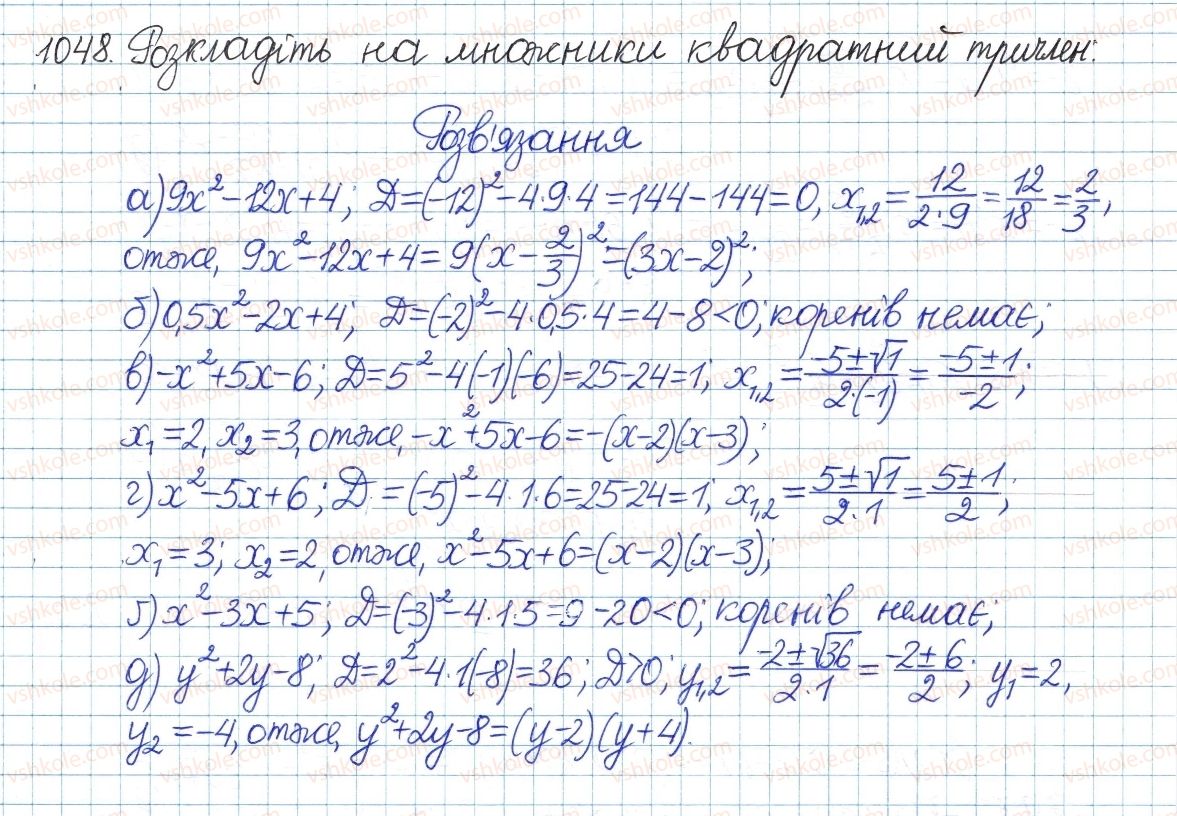 1048. Розкладіть на множники квадратний тричлен:
Розв'язання
а) 9x² - 12x + 4; Д = (-12)² - 4·9·4 = 144 - 144 = 0, x₁,₂ = 12/(2·9) = 12/18 = 2/3,
отже, 9x² - 12x + 4 = 9(x - 2/3)² = (3x - 2)²;
б) 0,5x² - 2x + 4; Д = (-2)² - 4·0,5·4 = 4 - 8 < 0; коренів немає;
в) -x² + 5x - 6; Д = 5² - 4(-1)(-6) = 25 - 24 = 1; x₁,₂ = (-5 ± √1)/(2·(-1)) = (-5 ± 1)/(-2);
x₁ = 2, x₂ = 3, отже, -x² + 5x - 6 = -(x - 2)(x - 3);
г) x² - 5x + 6; Д = (-5)² - 4·1·6 = 25 - 24 = 1; x₁,₂ = (5 ± √1)/(2·1) = (5 ± 1)/2;
x₁ = 3; x₂ = 2, отже, x² - 5x + 6 = (x - 2)(x - 3);
ґ) x² - 3x + 5; Д = (-3)² - 4·1·5 = 9 - 20 < 0; коренів немає;
д) y² + 2y - 8; Д = 2² - 4·1(-8) = 36; Д > 0; y₁,₂ = (-2 ± √36)/(2·1) = (-2 ± 6)/2; y₁ = 2,
y₂ = -4, отже, y² + 2y - 8 = (y - 2)(y + 4).